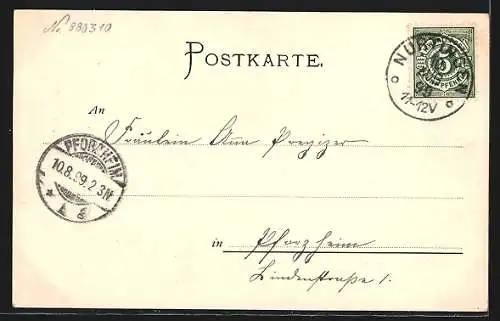 No. 880310
POSTKARTE.
NÜRTINGEN
11-12V
An
Fräulein Anna Pregizer
PFORZHEIM
10.8.99.2-3N
in Pforzheim
Lindenstraße 1.